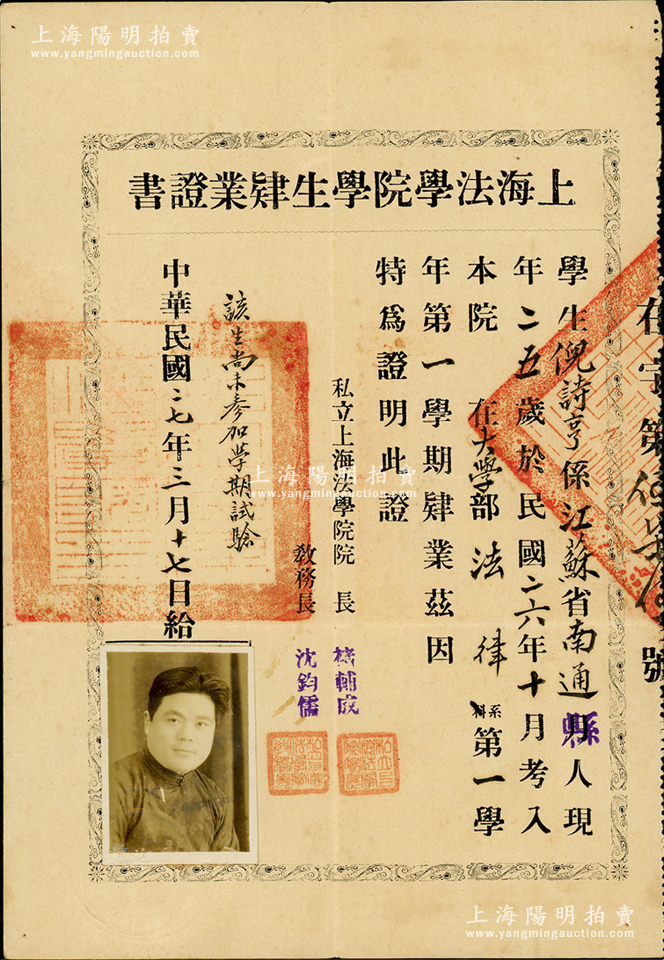 上海陽明拍賣
www.yangmingauction.com
上海法學院學生肄業證書
學生倪詩亨係江蘇省南通縣人現
年二五歲於民國二六年十月考入
本院在大學部法律系科第一學
年第一學期肄業茲因
特為證明此證
私立上海法學院院長 褚輔成
教務長 沈鈞儒
該生尚未參加學期試驗
中華民國二七年三月十七日給
在字第 號
上海陽明拍賣
www.yangmingauction.com
上海陽明拍賣
www.yangmingauction.com